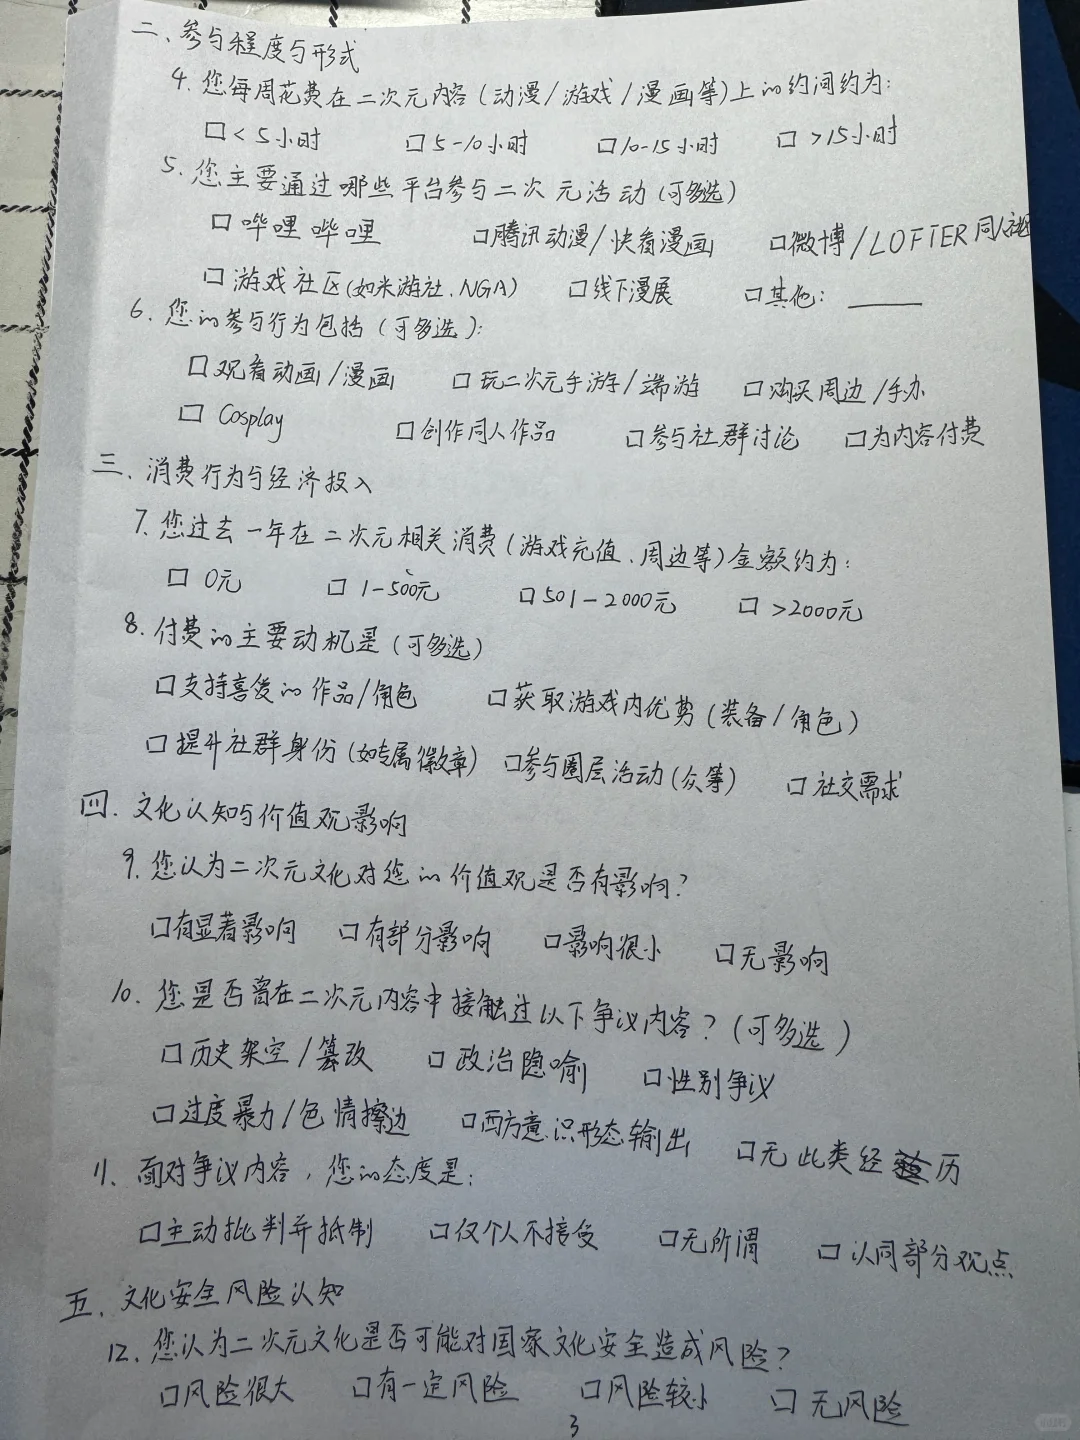 二、参与程度与形式
4. 您每周花费在二次元内容(动漫/游戏/漫画等)上的约间约为:
□<5小时 □5-10小时 □10-15小时 □>15小时
5. 您主要通过哪些平台参与二次元活动(可多选)
□哔哩哔哩 □腾讯动漫/快看漫画 □微博/LOFTER同人社区
□游戏社区(如米游社、NGA) □线下漫展 □其他:____
6. 您的参与行为包括(可多选):
□观看动画/漫画 □玩二次元手游/端游 □购买周边/手办
□Cosplay □创作同人作品 □参与社群讨论 □为内容付费
三、消费行为与经济投入
7. 您过去一年在二次元相关消费(游戏充值、周边等)金额约为:
□0元 □1-500元 □501-2000元 □>2000元
8. 付费的主要动机是(可多选)
□支持喜爱的作品/角色 □获取游戏内优势(装备/角色)
□提升社群身份(如专属徽章) □参与圈层活动(众等) □社交需求
四、文化认知与价值观影响
9. 您认为二次元文化对您的价值观是否有影响?
□有显著影响 □有部分影响 □影响很小 □无影响
10. 您是否曾在二次元内容中接触过以下争议内容?(可多选)
□历史架空/篡改 □政治隐喻 □性别争议
□过度暴力/色情擦边 □西方意识形态输出 □无此类经历
11、面对争议内容,您的态度是:
□主动批判并抵制 □仅个人不接受 □无所谓 □认同部分观点
五、文化安全风险认知
12、您认为二次元文化是否可能对国家文化安全造成风险?
□风险很大 □有一定风险 □风险较小 □无风险
3